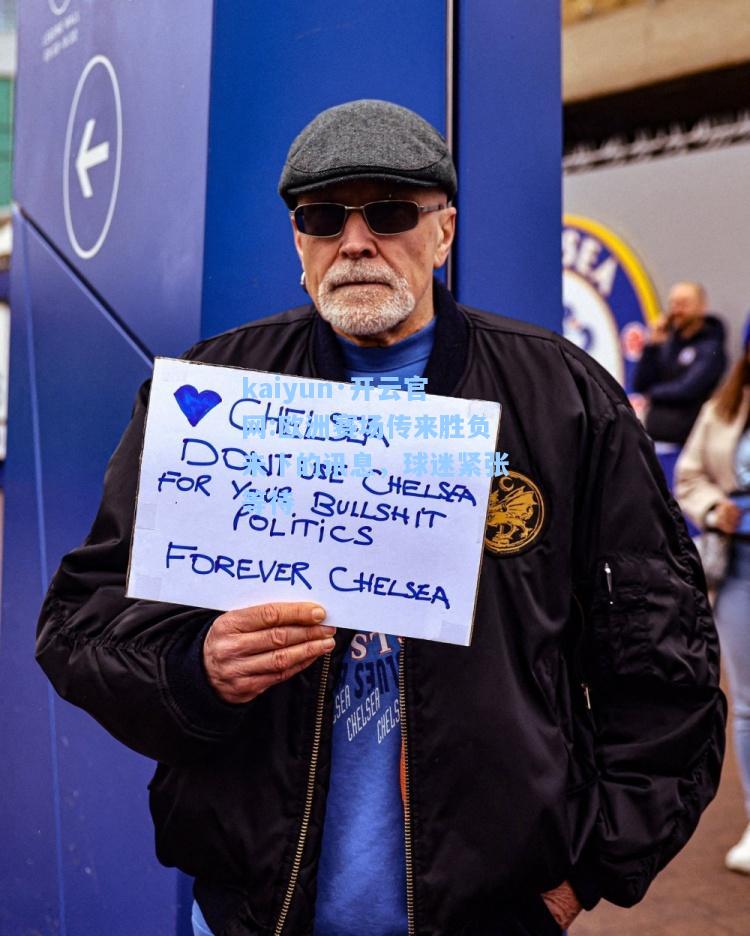 SEA
kaiyun·开云官
网:欧洲赛场传来胜负
未下的讯息，球迷紧张
等待
CHELSEA
DON'T USE CHELSEA
FOR YOUR BULLSHIT
POLITICS
FOREVER CHELSEA
ST
LUES
SEA CHELSEA CHELS